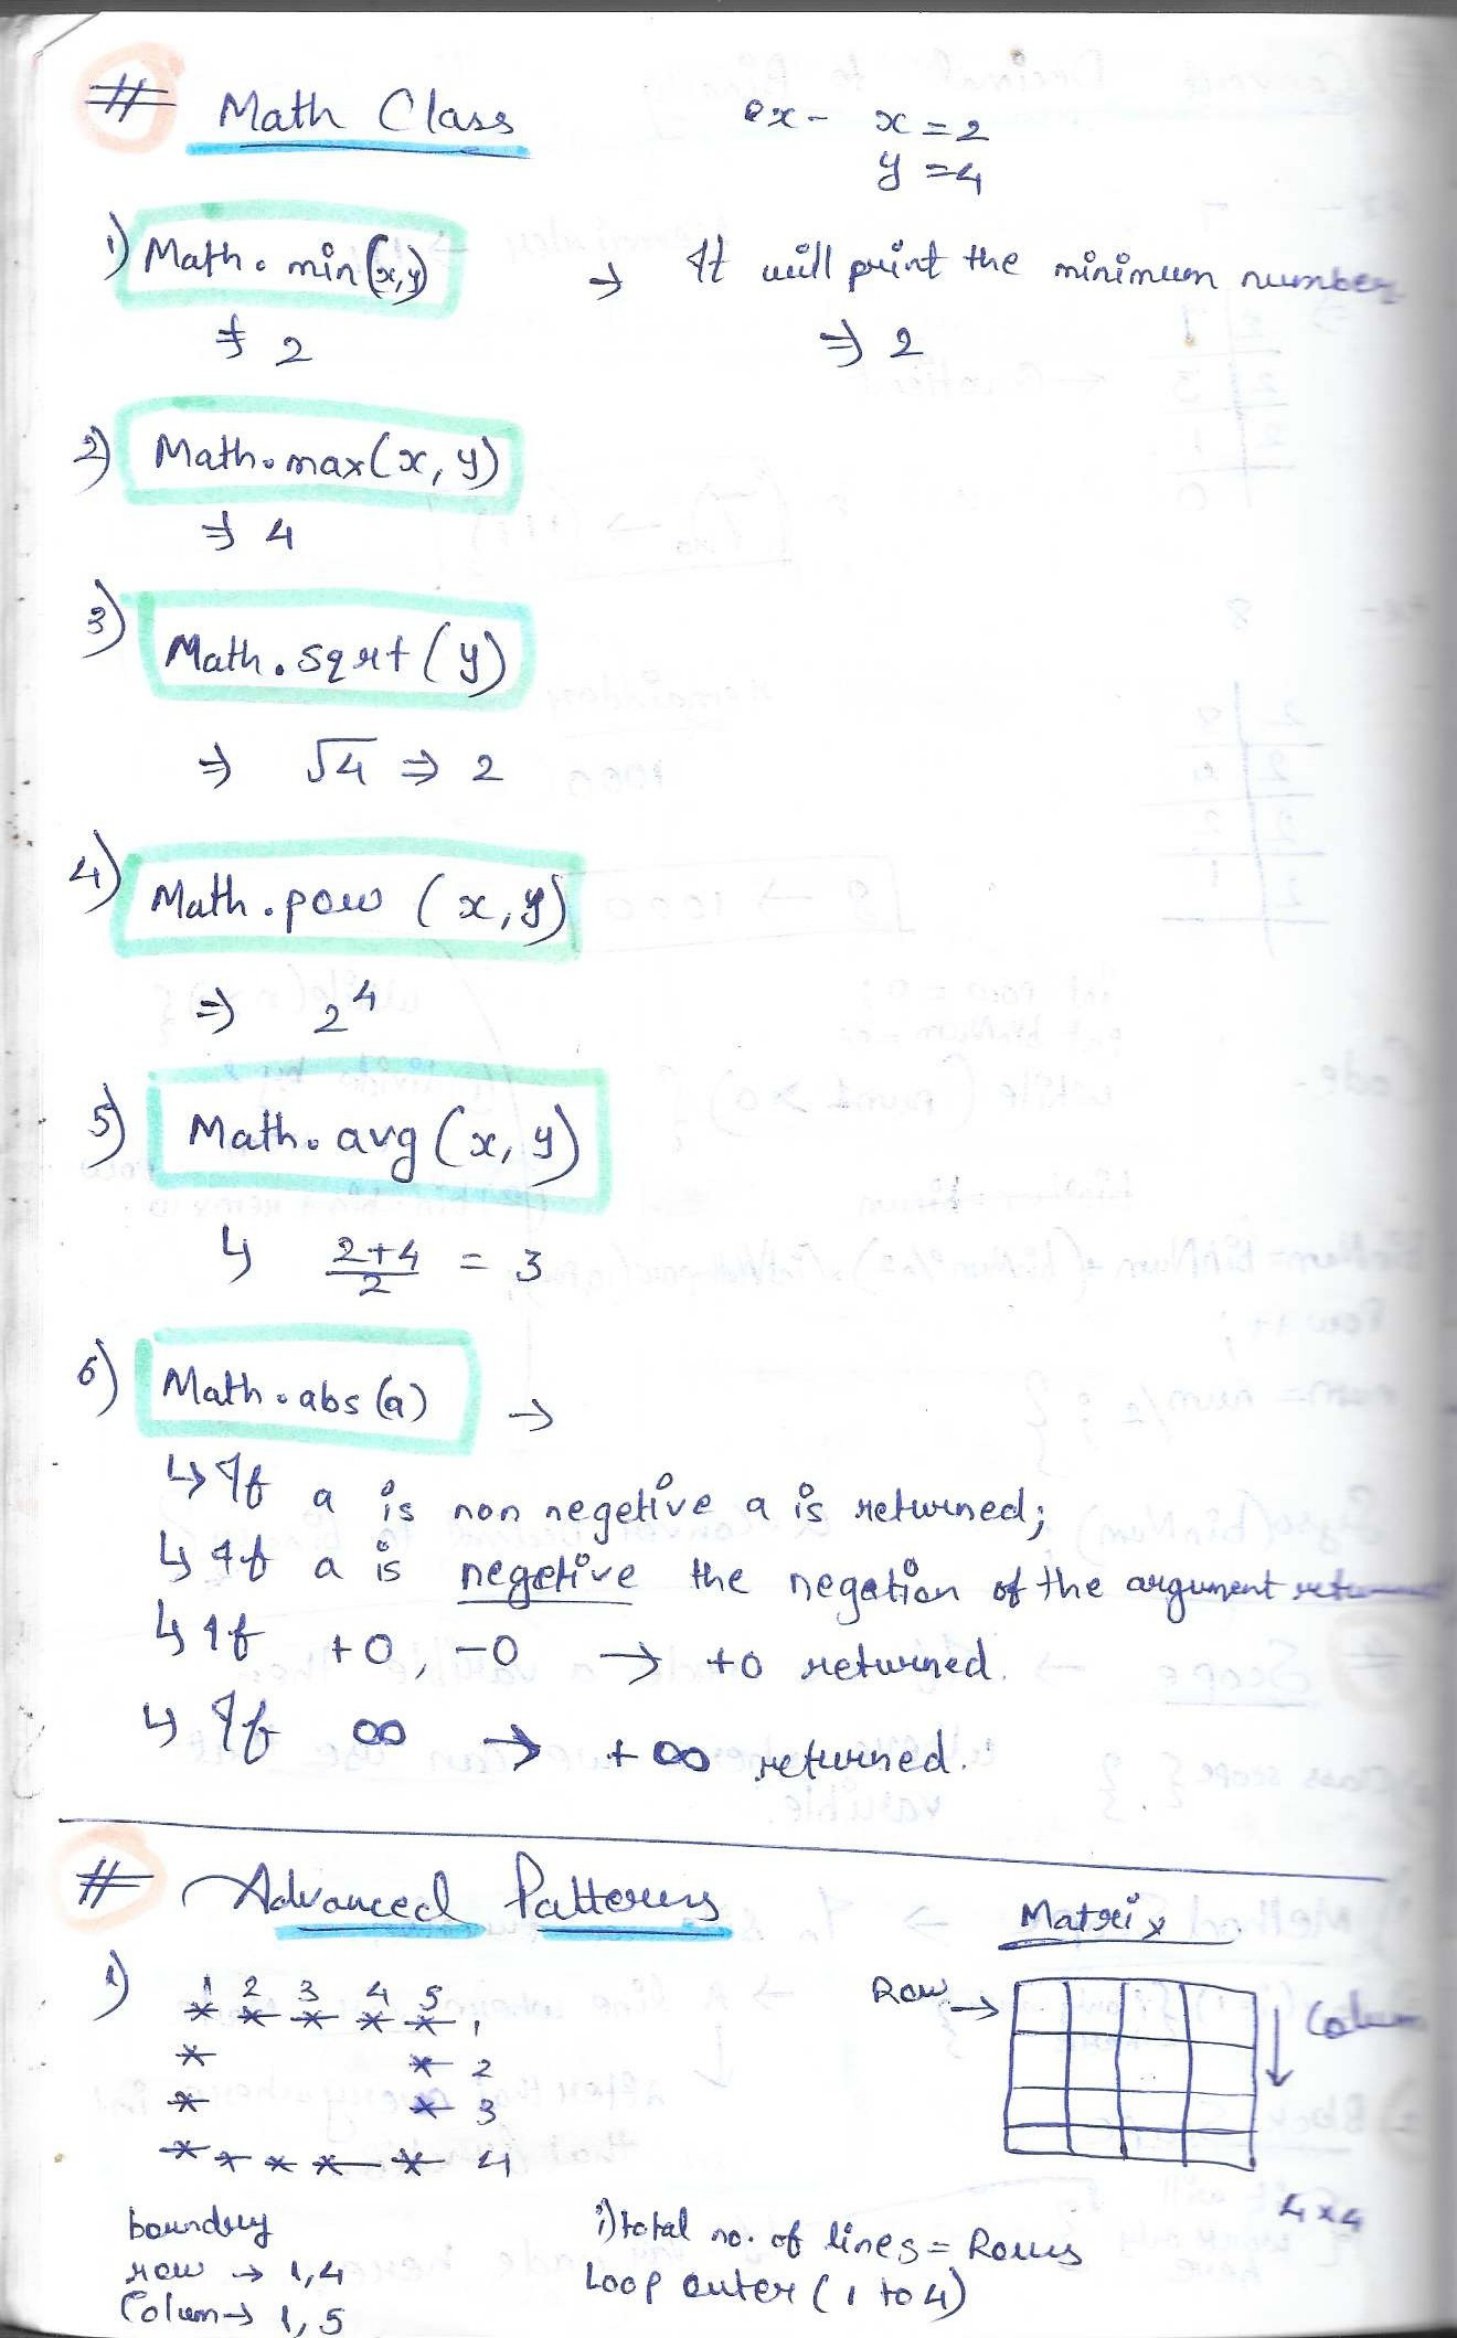 # Math Class
ex- x = 2
y = 4
1) Math.min(x,y) → It will print the minimum number
⇒ 2 ⇒ 2
2) Math.max(x, y)
⇒ 4
3) Math.sqrt(y)
⇒ √4 ⇒ 2
4) Math.pow (x,y)
⇒ 2^4
5) Math.avg(x, y)
↳ 2+4/2 = 3
6) Math.abs(a) →
↳ If a is non negetive a is returned;
↳ If a is negetive the negation of the argument
↳ If +0, -0 → +0 returned.
↳ If ∞ → +∞ returned.
# Advanced Patterns
Matrix
1) 1 2 3 4 5
* * * * * 1
* * 2
* * 3
* * * * * 4
Row →
Colum
4x4
boundry
row → 1,4
Colum → 1,5
i) total no. of lines = Rows
Loop outer (1 to 4)